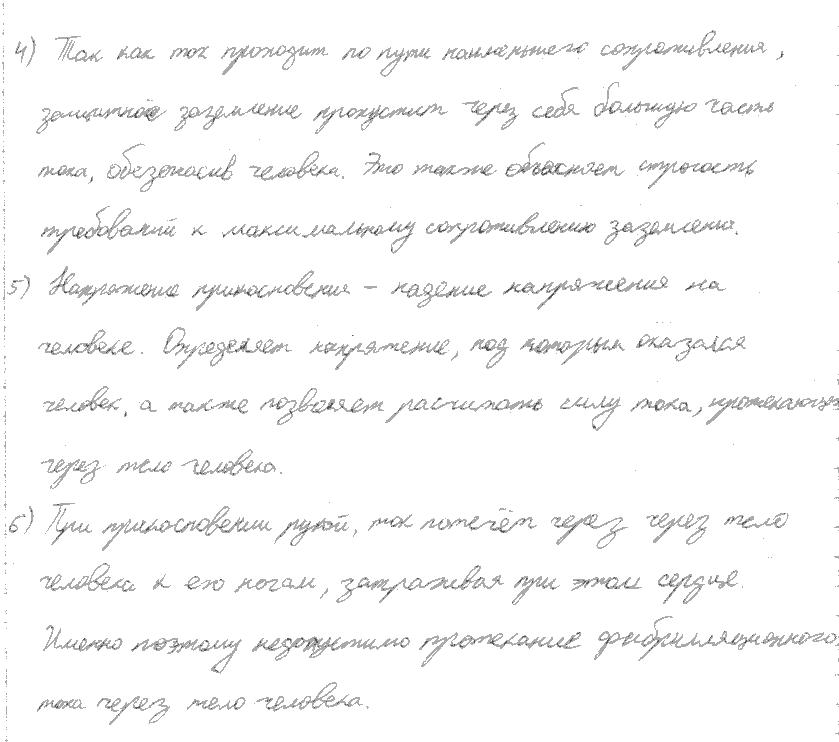 4) Так как ток проходит по пути наименьшего сопротивления,
защитное заземление пропустит через себя большую часть
тока, обезопасив человека. Это также объясняет строгость
требований к максимальному сопротивлению заземления.
5) Напряжение прикосновения - падение напряжения на
человеке. Определяет напряжение, под которым оказался
человек, а также позволяет расчитать силу тока, протекающую
через тело человека.
6) При прикосновении рукой, ток потечёт через через тело
человека к его ногам, затрагивая при этом сердце.
Именно поэтому недопустимо протекание фибрилляционного
тока через тело человека.